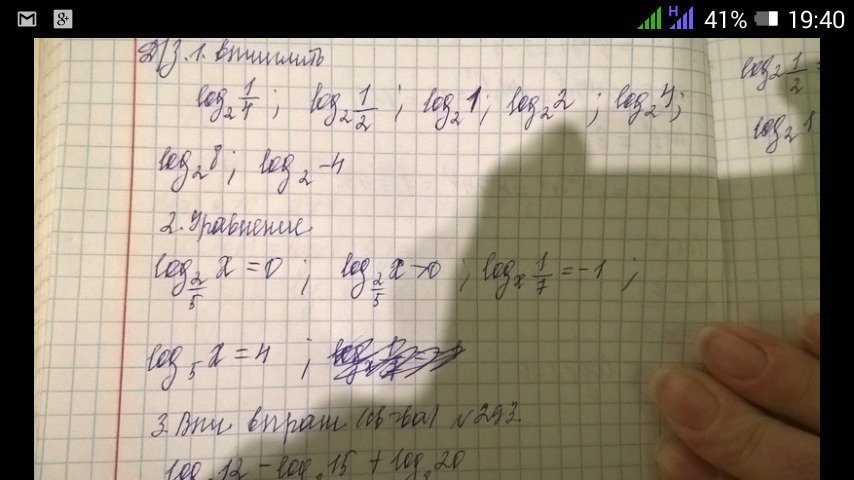 41% 19:40
Д/З. 1. Вычислить
log₂ 1/4 ; log₂ 1/2 ; log₂ 1 ; log₂ 2 ; log₂ 4 ;
log₂ 8 ; log₂ -4
2. Уравнение
log_2/5 x = 0 ; log_2/5 x > 0 ; logₓ 1/7 = -1 ;
log₅ x = 4 ;
3. №293
log 12 - log 15 + log 20
log₂ 1/2 =
log₂ 1